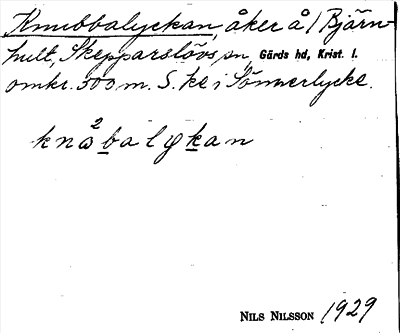 Knubbalyckan, åker å 1 Björn-
hult, Skepparslövs sn, Gärds hd, Krist. l.
omkr. 300 m. S. ke i Sönnerlycke.
knɷ²balykan
NILS NILSSON 1929